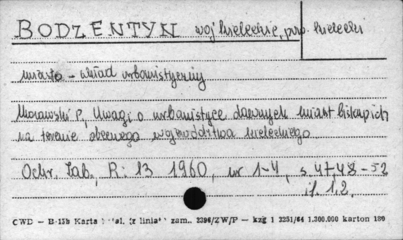 BODZENTYN woj. kieleckie, pow. kielecki
miasto - układ urbanistyczny
Morawski P, Uwagi o urbanistyce dawnych miast biskupich
na terenie obecnego województwa kieleckiego
Ochr. Zab, R: 13 1960, nr 1-4, s. 47,48 - 52
il. 1,2,
CWD — B-13b Karta zam. 2396/ZW/P — kzg 1 2251/64 1.300.000 karton 180